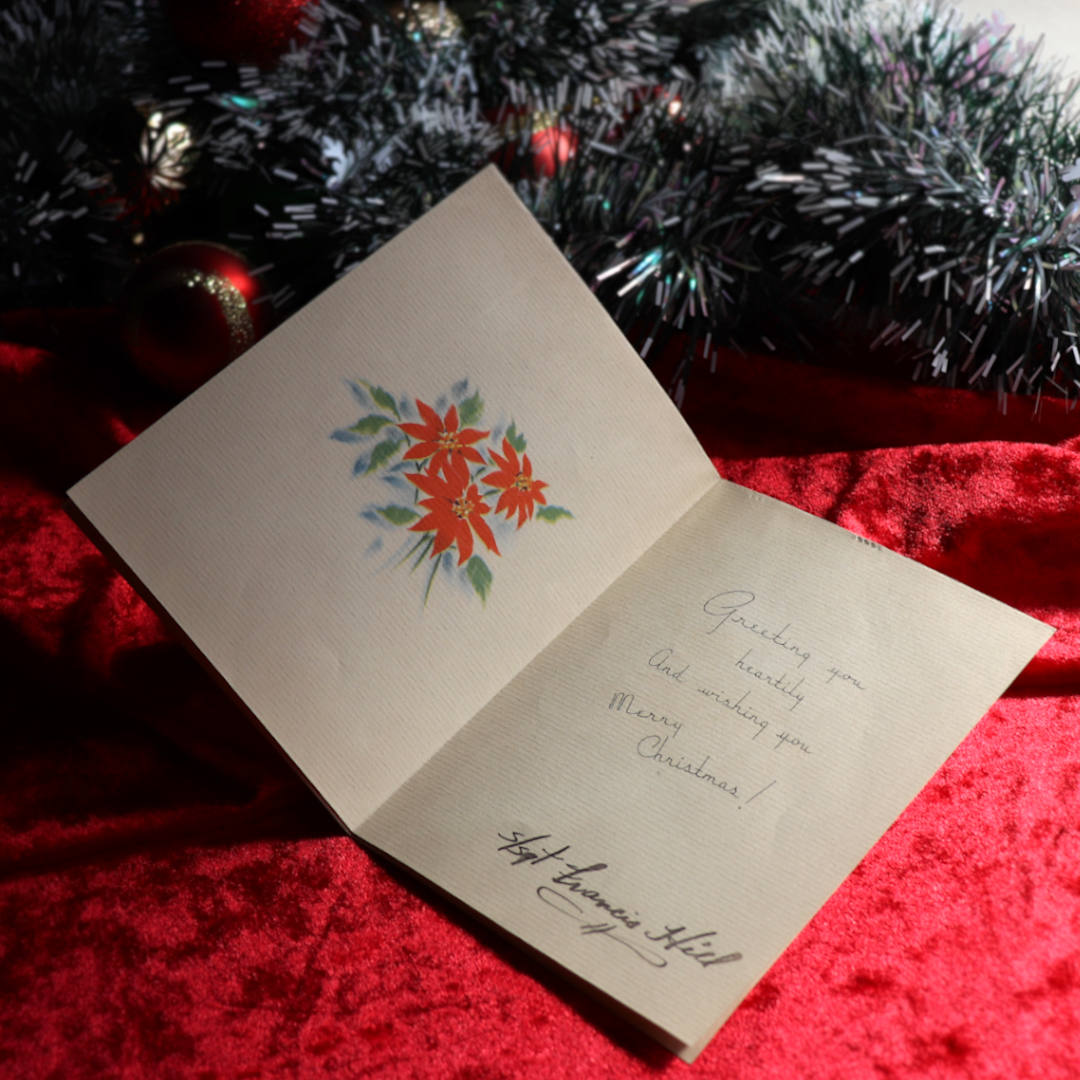 Greeting you
heartily
And wishing you
Merry
Christmas!
S/sgt Francis Hill